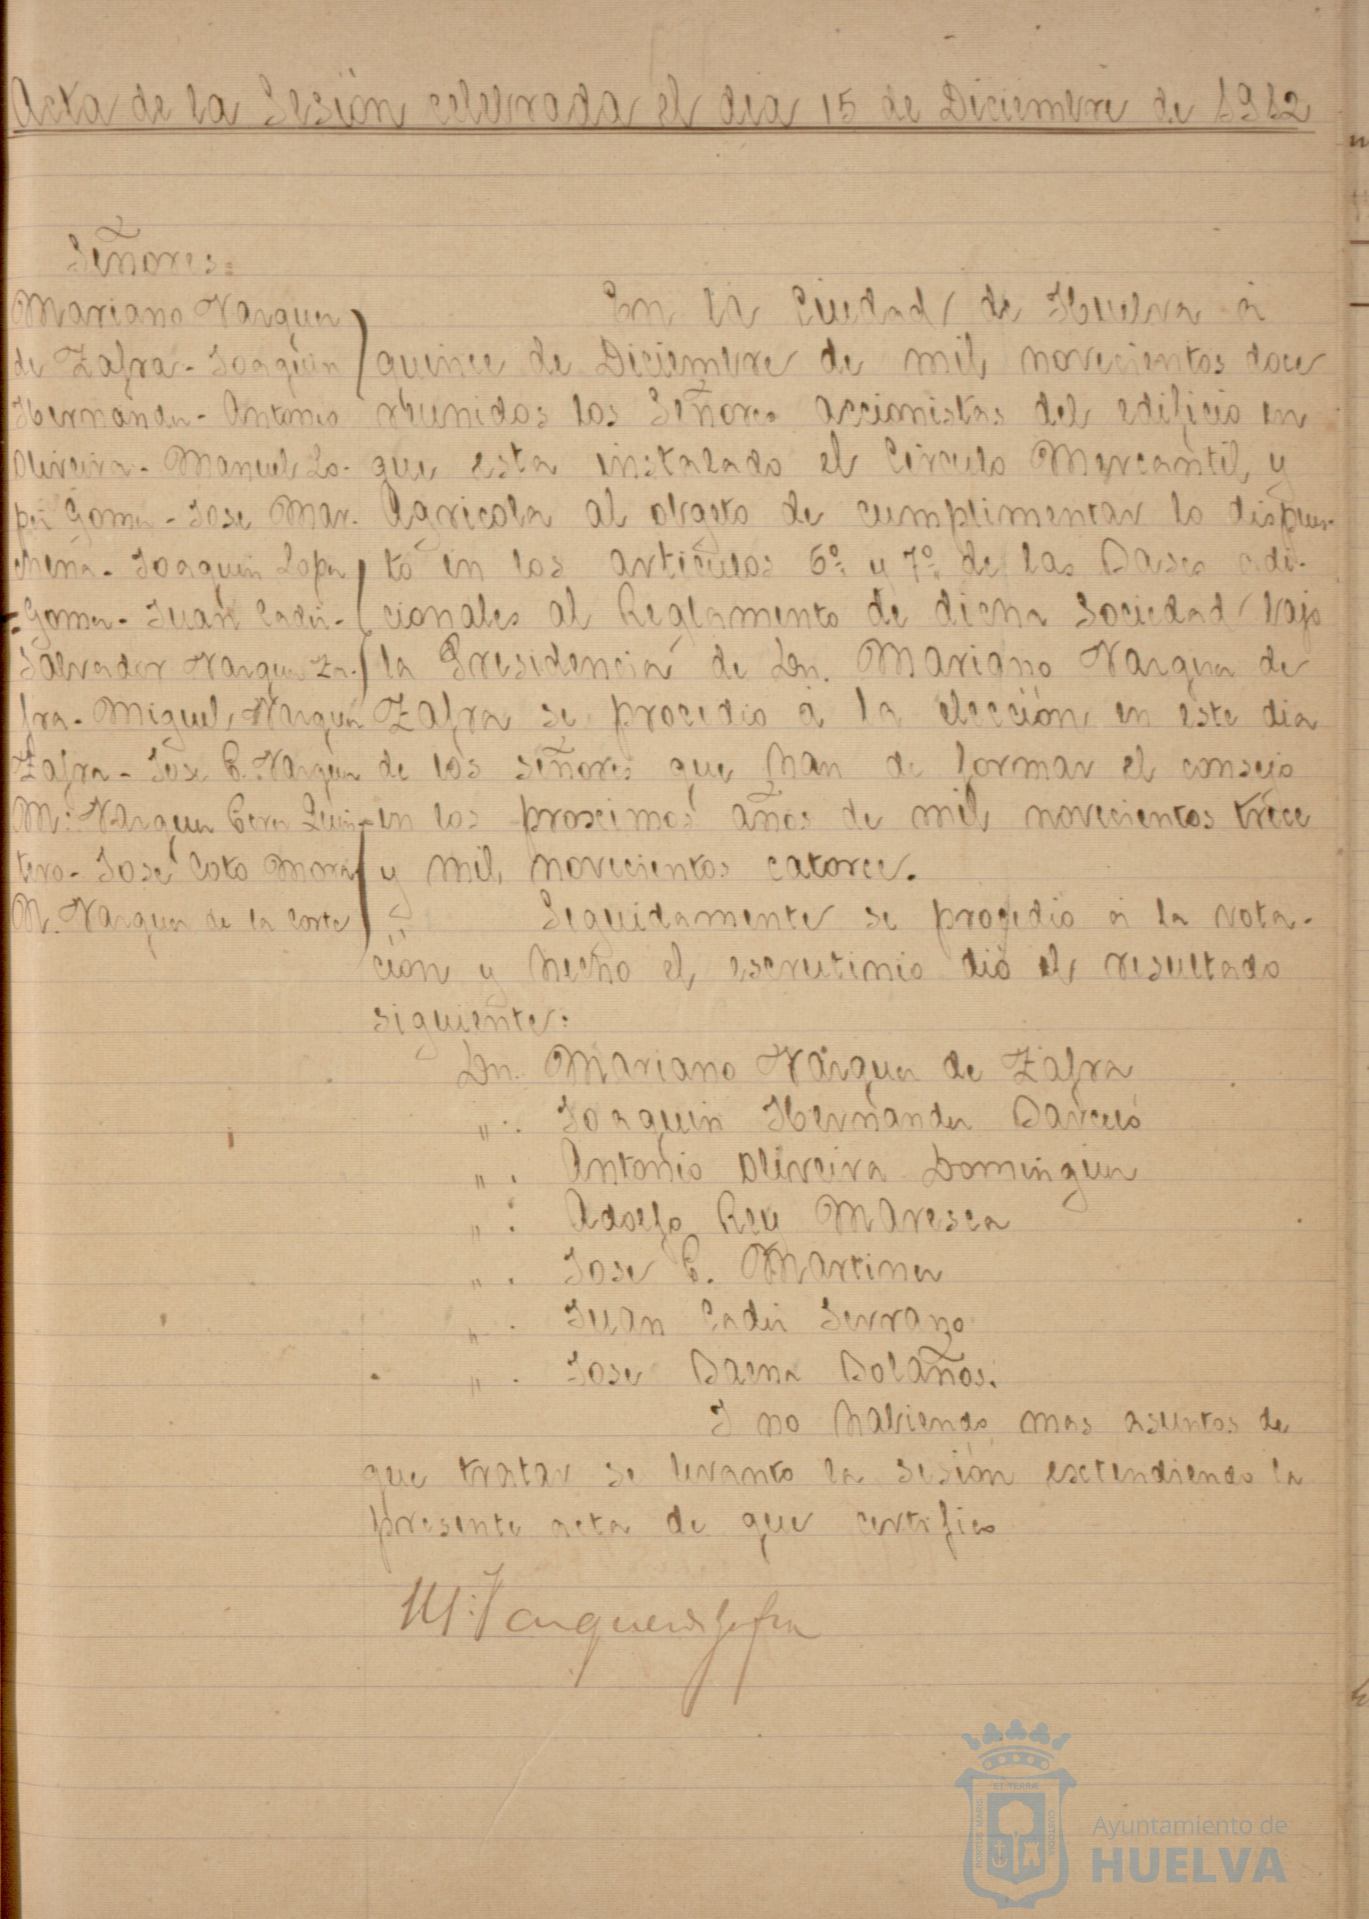 Acta de la Sesión celebrada el dia 15 de Diciembre de 1912
Señores=
Mariano Vazquez
de Zafra - Joaquin
Hernandez - Antonio
Oliveira - Manuel Lo-
pez Gomez - Jose Mar-
chena - Joaquin Lopez
Gomez - Juan Cadiz -
Salvador Vazquez Za-
fra - Miguel Vazquez
Zafra - Jose E. Vazquez
M. Vazquez Perez Quin-
tero - José Coto Mora
M. Vazquez de la Corte
En la Ciudad de Huelva á
quince de Diciembre de mil novecientos doce
reunidos los Señores accionistas del edificio en
que esta instalado el Circulo Mercantil y
Agricola al obgeto de cumplimentar lo dispues-
to en los articulos 6º y 7º de las Bases adi-
cionales al Reglamento de dicha Sociedad bajo
la Presidencia de Dn. Mariano Vazquez de
Zafra se procedio á la elección en este dia
de los señores que han de formar el consejo
en los proscimos años de mil novecientos trece
y mil novecientos catorce.
Seguidamente se procedio á la vota-
ción y hecho el escrutinio dió el resultado
siguiente:
Dn. Mariano Vazquez de Zafra
" . Joaquin Hernandez Barceló
" . Antonio Oliveira Dominguez
" . Adolfo Rey Maresca
" . Jose E. Martinez
" . Juan Cadiz Serrano
" . Jose Baena Bolaños.
Y no habiendo mas asuntos de
que tratar se levanto la sesión esctendiendo la
presente acta de que certifico
M. Vazquez de Zafra
ET TERRAE
PORTUS MARIS
CUSTODIA
Ayuntamiento de
HUELVA